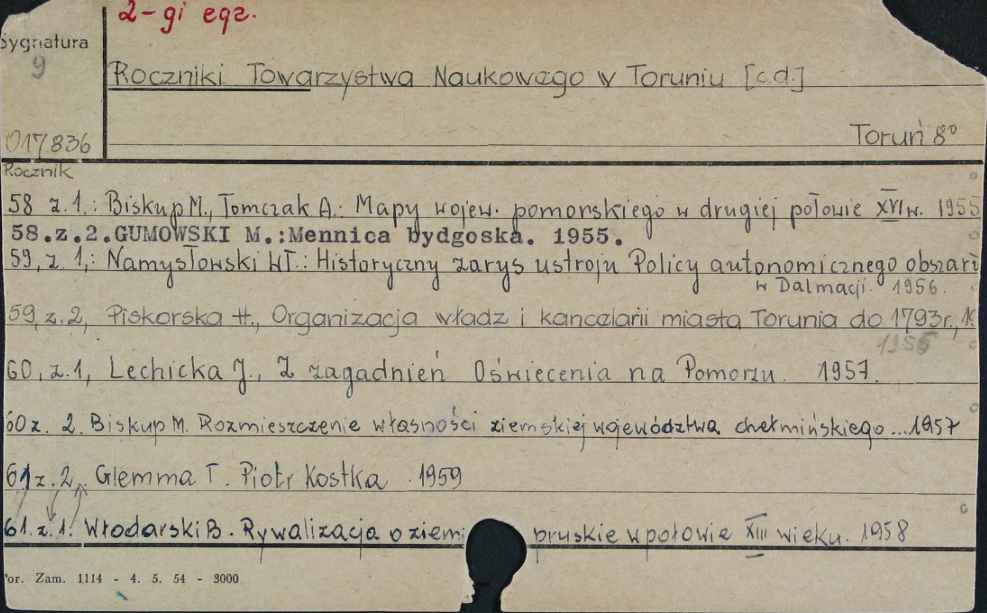 2-gi egz.
Sygnatura
9
Roczniki Towarzystwa Naukowego w Toruniu [c.d.]
017836
Toruń 8°
Rocznik
58 z.1.: Biskup M., Tomczak A.: Mapy wojew. pomorskiego w drugiej połowie XVI w. 1955
58.z.2.GUMOWSKI M.:Mennica bydgoska. 1955.
59, z.1,: Namysłowski Wł.: Historyczny zarys ustroju Policy autonomicznego obszaru
w Dalmacji. 1956.
59, z.2, Piskorska H., Organizacja władz i kancelarii miasta Torunia do 1793r.,
1956
60, z.1, Lechicka J., Z zagadnień Oświecenia na Pomorzu. 1957.
60 z. 2. Biskup M. Rozmieszczenie własności ziemskiej województwa chełmińskiego...1957
61 z. 2. Glemma T. Piotr Kostka 1959
61. z. 1. Włodarski B. Rywalizacja o ziemi pruskie w połowie XIII wieku. 1958
or. Zam. 1114 - 4. 5. 54 - 3000